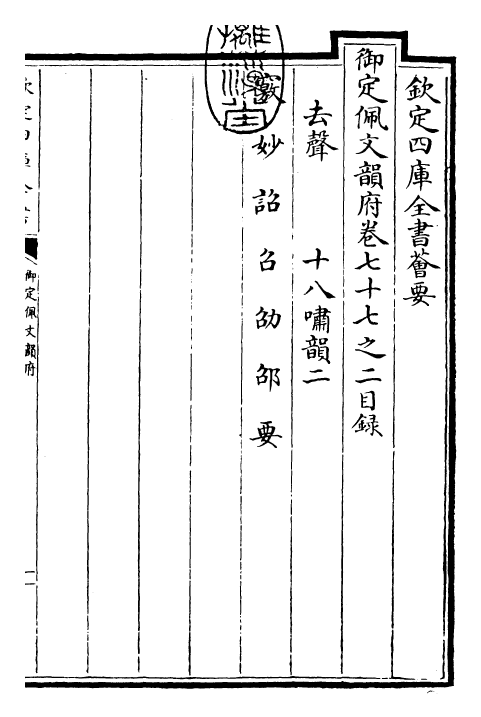 欽定四庫全書薈要
御定佩文韻府卷七十七之二目録
去聲 十八嘯韻二
竅 妙 詔 召 劭 邵 要
御定佩文韻府